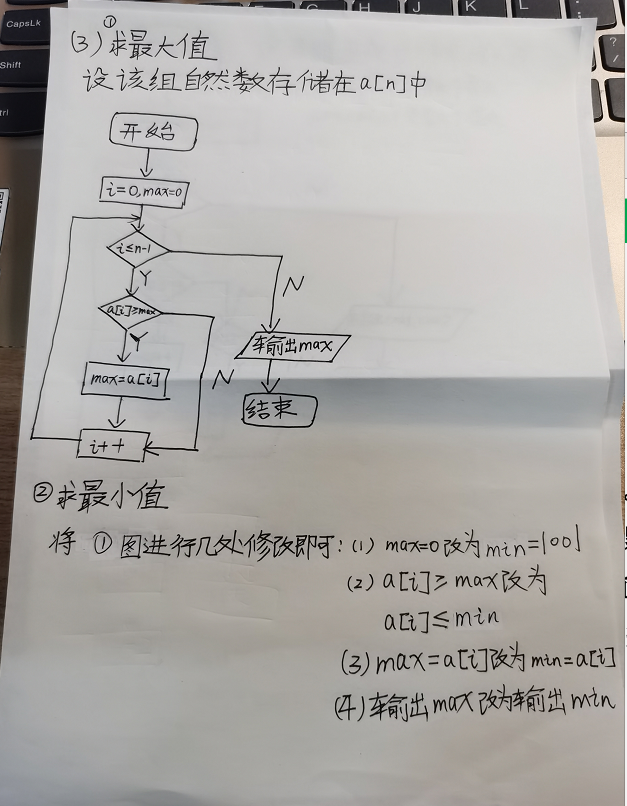 CapsLk
Shift
trl
G
H
J
K
L
①
(3) 求最大值
设该组自然数存储在a[n]中
开始
i=0,max=0
i≤n-1
Y
N
a[i]≥max
Y
N
输出max
max=a[i]
结束
i++
②求最小值
将 ①图进行几处修改即可:(1) max=0改为min=1001
(2) a[i]≥max改为
a[i]≤min
(3) max=a[i]改为min=a[i]
(4) 输出max改为输出min